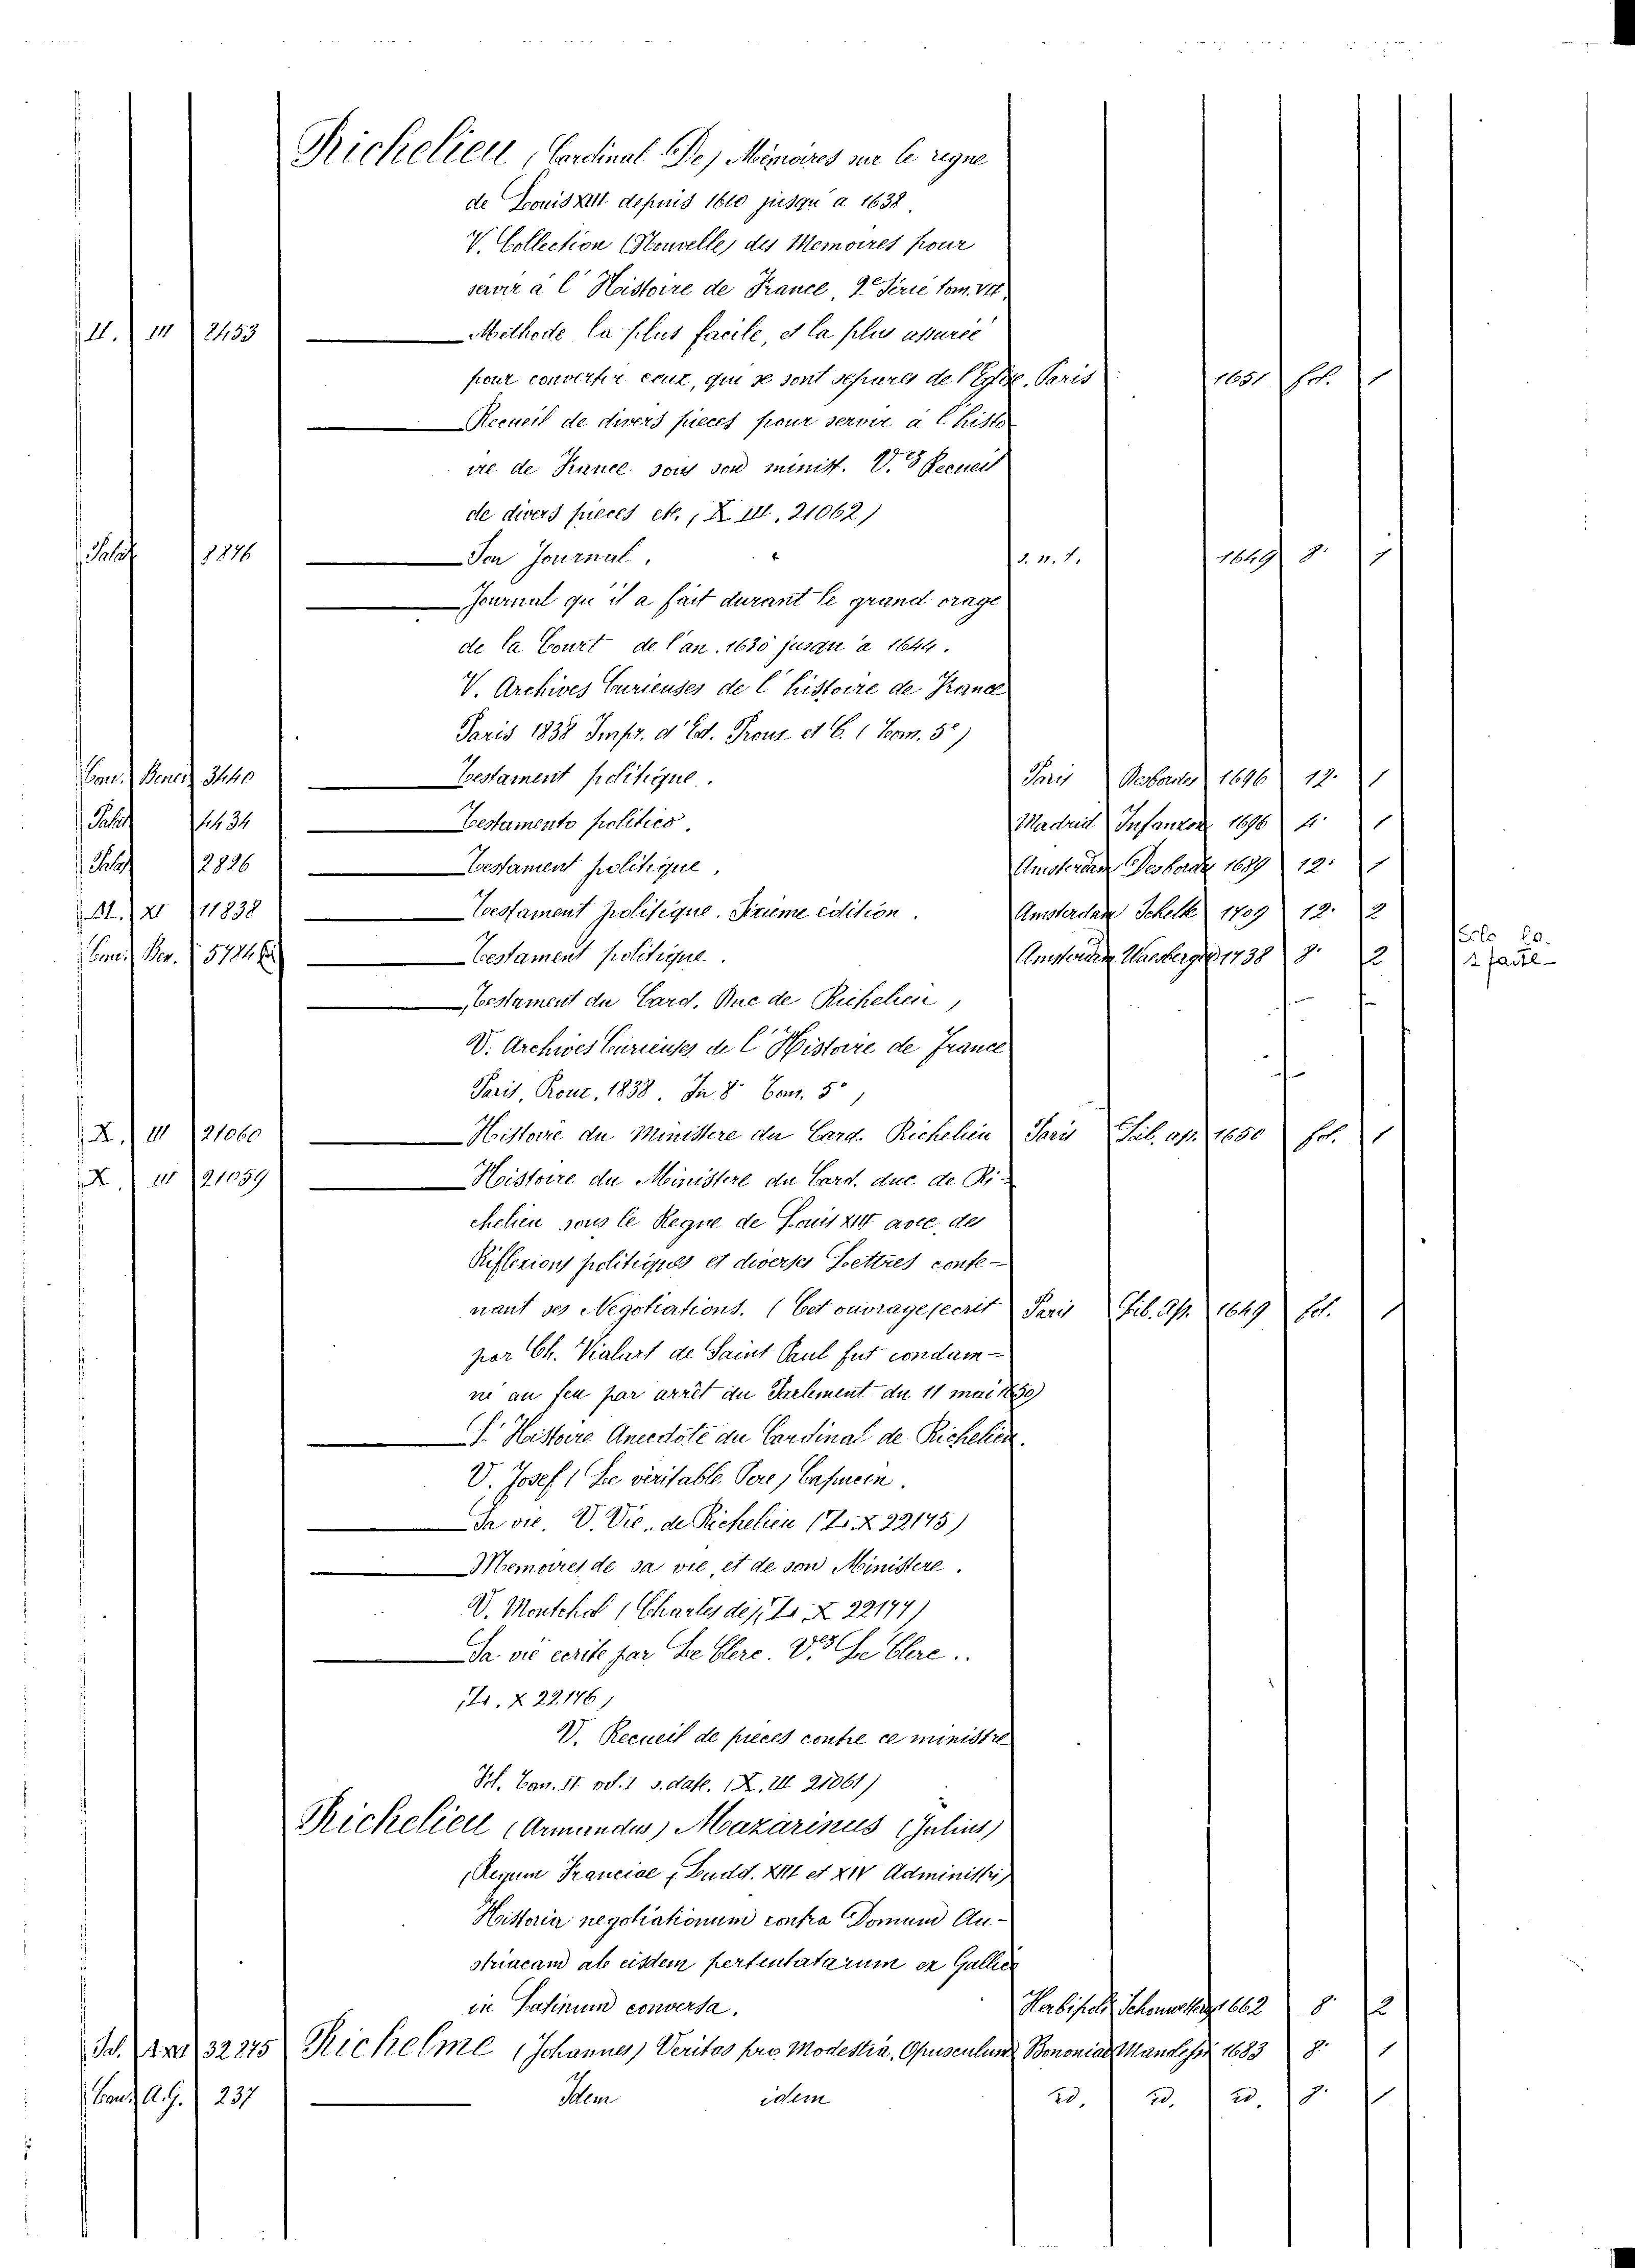 Richelieu (Cardinal De) Mémoires sur le regne
de Louis XIII depuis 1610 jusqu'a 1638.
V. Collection (Nouvelle) des Memoires pour
servir à l'Histoire de France, 2e Serie tom. VII.
II. III 2453 Methode la plus facile, et la plus assurée
pour convertir ceux, qui se sont separes de l'Eglise. Paris 1651 fol. 1
Recueil de divers pieces pour servir à l'histo-
ire de France sous son minist. V. Recueil
de divers pieces etc. (X III. 21062)
Palat 1876 Son Journal. s. n. t. 1649 8° 1
Journal qu'il a fait durant le grand orage
de la Court de l'an. 1630 jusqu'a 1644.
V. Archives Curieuses de l'histoire de France
Paris 1838 Impr. d'Ed. Prouz et C. (Tom. 5°)
Con. Bened 3440 Testament politique. Paris Desbordes 1696 12° 1
Palat 1434 Testamento politico. Madrid Infanzon 1696 4° 1
Palat 2826 Testament politique. Amsterdam Desbordes 1689 12° 1
II. XI 11838 Testament politique. Sixieme edition. Amsterdam Schelte 1709 12° 2
Con. Ben. 5724 Testament politique. Amsterdam 1738 8° 2
Solo lo.
1 parte
Testament du Card. Duc de Richelieu,
V. Archives Curieuses de l'Histoire de France
Paris, Prouz. 1838. In 8° Tom. 5°,
X. III 21060 Histoire du Ministere du Card. Richelieu Paris Lib. ap. 1650 fol. 1
X. III 21059 Histoire du Ministere du Card. duc de Ri-
chelieu sous le Regne de Louis XIII avec des
Riflexions politiques et diverses Lettres conte-
nant ses Negotiations. (Cet ouvrage ecrit Paris Lib. Ap. 1649 fol. 1
par Ch. Vialart de Saint Paul fut condam-
né au feu par arrêt du Parlement du 11 mai 1650)
S. Histoire Anecdote du Cardinal de Richelieu.
V. Josef (Le véritable Pere) Capucin.
Sa vie. V. Vie.. de Richelieu (Ti. X 22175)
Memoires de sa vie, et de son Ministere.
V. Montchal (Charles de) (Ti. X 22177)
Sa vie ecrite par Le Clerc. V. Le Clerc..
(Ti. X 22176)
V. Recueil de pieces contre ce ministre
Fol. Tom. II s. date. (X. III 21061)
Richelieu (Armandus) Mazarinus (Julius)
(Regum Franciae, Ludd. XIII et XIV Administri)
Historia negotiationum contra Domum Au-
striacam ab eisdem pertentatarum ex Gallico
in Latinum conversa. Herbipoli 1662 8° 2
32275 Richelme (Johannes) Veritas pro Modestia, Opusculum Bononiae 1683 8° 1
Con. A. G. 237 Idem idem id. id. id. 8° 1